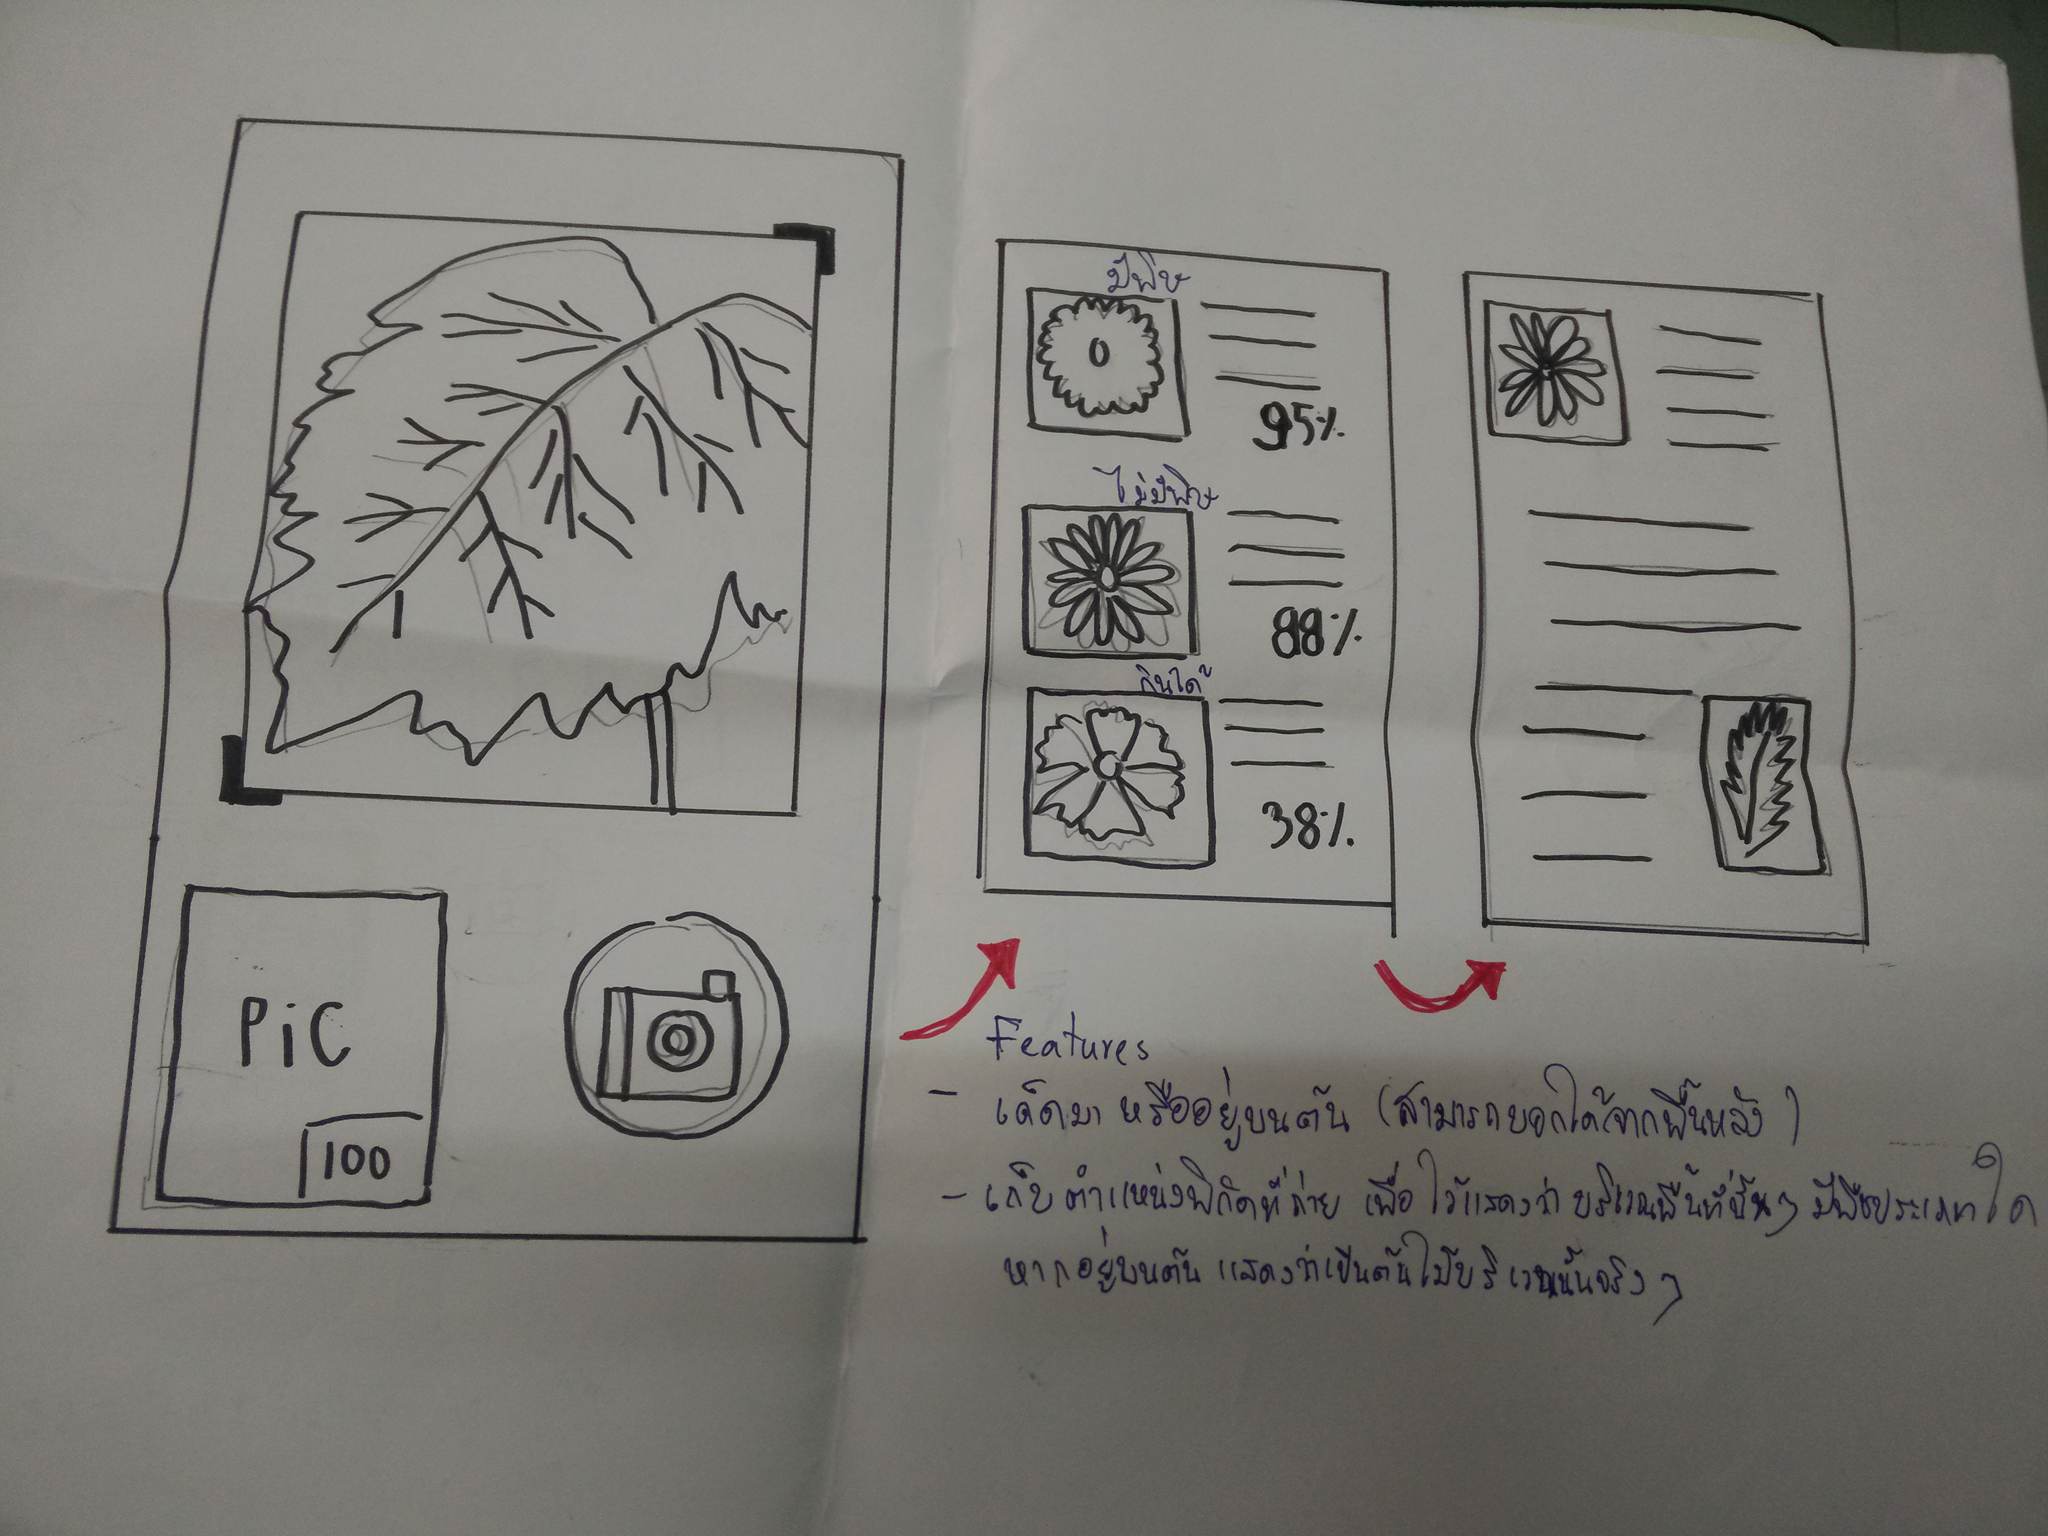 PiC
100
มีพิษ
95%
ไม่มีพิษ
88%
กินได้
38%
Features
- เด็ดมา หรืออยู่บนต้น (สามารถบอกได้จากพื้นหลัง)
- เก็บตำแหน่งพิกัดที่ถ่าย เพื่อไว้แสดงว่าบริเวณพื้นที่นั้นๆ มีพืชประเภทใด
หากอยู่บนต้น แสดงว่าเป็นต้นไม้บริเวณนั้นจริงๆ